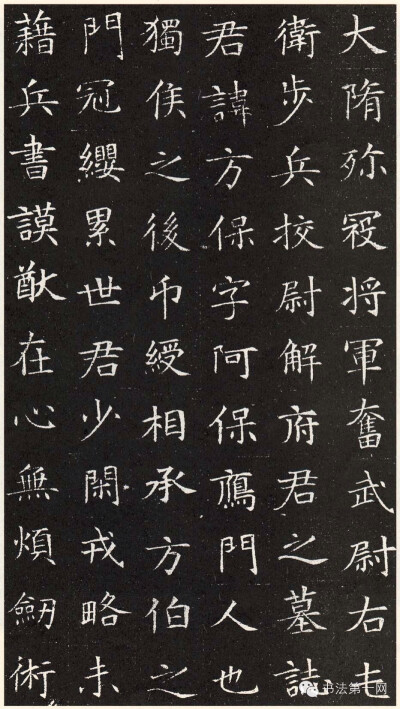 大隋殄寇将軍奮武尉右
衛步兵挍尉解府君之墓誌
君諱方保字阿保鴈門人也
獨侯之後印綬相承方伯之
門冠纓累世君少閑戎略未
藉兵書謨猷在心無煩劒術
书法第一网